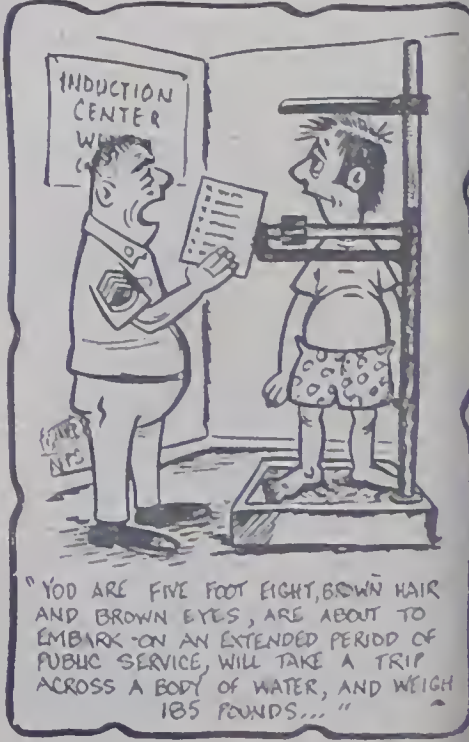 INDUCTION
CENTER
"YOU ARE FIVE FOOT EIGHT, BROWN HAIR
AND BROWN EYES, ARE ABOUT TO
EMBARK ON AN EXTENDED PERIOD OF
PUBLIC SERVICE, WILL TAKE A TRIP
ACROSS A BODY OF WATER, AND WEIGH
185 POUNDS..."